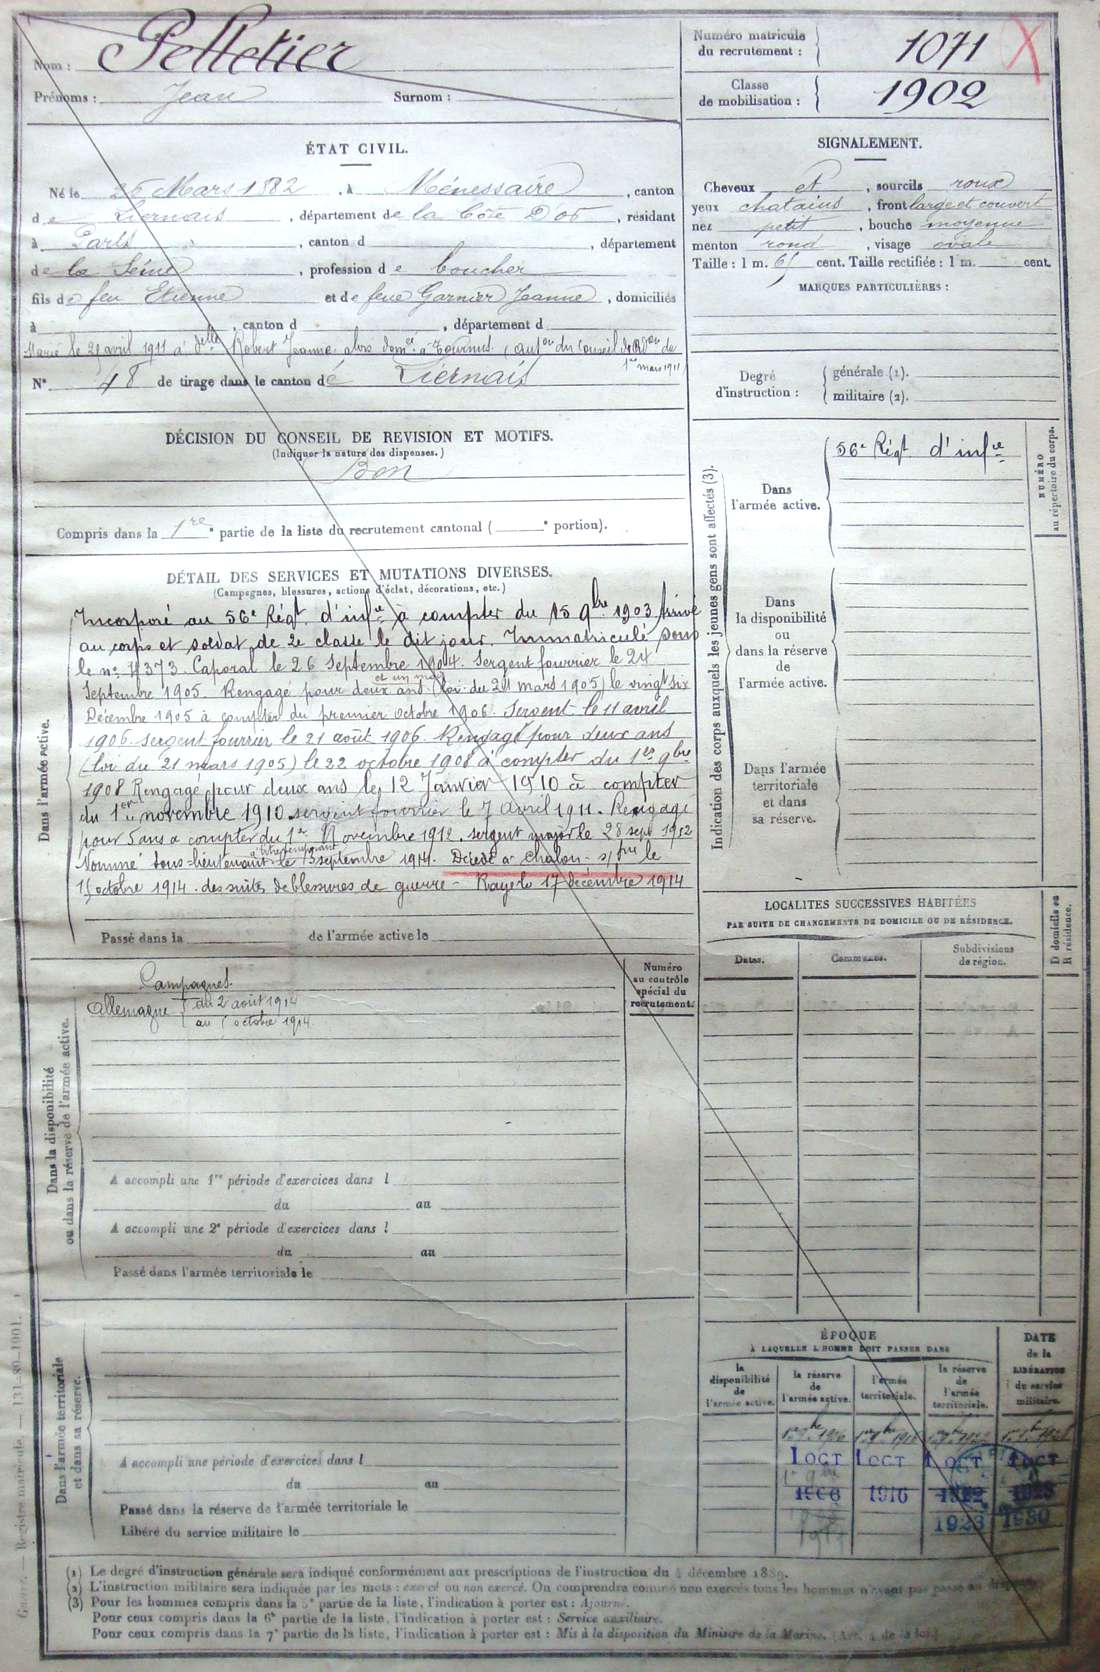 Nom : Pelletier
Prénoms : Jean Surnom :
Numéro matricule du recrutement : 1071
Classe de mobilisation : 1902
ÉTAT CIVIL.
Né le 26 Mars 1882, à Ménessaire, canton
de Liernais, département de la Côte D'or, résidant
à Paris, canton d , département
de la Seine, profession de boucher
fils de feu Etienne et de feue Garnier Jeanne, domiciliés
à , canton d , département d
Marié le avril 1911 à delle Robert Jeanne alors domée à Tournus (auton du Conseil d'Adon du
1er mars 1911)
N° 48 de tirage dans le canton de Liernais
SIGNALEMENT.
Cheveux , sourcils roux
yeux chatains, front large et couvert
nez petit, bouche moyenne
menton rond, visage ovale
Taille : 1 m. 65 cent. Taille rectifiée : 1 m. cent.
MARQUES PARTICULIÈRES :
Degré d'instruction : générale (1).
militaire (2).
DÉCISION DU CONSEIL DE REVISION ET MOTIFS.
(Indiquer la nature des dispenses.)
Bon
Compris dans la 1re partie de la liste du recrutement cantonal ( e portion).
DÉTAIL DES SERVICES ET MUTATIONS DIVERSES.
(Campagnes, blessures, actions d'éclat, décorations, etc.)
Dans l'armée active.
Incorporé au 56e Régt d'infie à compter du 15 9bre 1903 Arrivé
au corps et soldat de 2e classe le dit jour. Immatriculé sous
le n° 4373. Caporal le 26 Septembre 1904. Sergent fourrier le 24
et un mois
Septembre 1905. Rengagé pour deux ans (loi du 21 mars 1905) le vingt six
Décembre 1905 à compter du premier octobre 1906. Sergent le 11 avril
1906. Sergent fourrier le 21 août 1906. Rengagé pour deux ans
(loi du 21 mars 1905) le 22 octobre 1908 à compter du 1er 9bre
1908 Rengagé pour deux ans le 12 Janvier 1910 à compter
du 1er novembre 1910. sergent fourrier le 7 Avril 1911. Rengagé
pour 5 ans à compter du 1er Novembre 1912. sergent major le 28 sept 1912
à titre temporaire
Nommé sous-lieutenant le septembre 1914. Décédé à Chalon s/ le
octobre 1914. des suites de blessures de guerre - Rayé le 17 décembre 1914
Passé dans la de l'armée active le
Indication des corps auxquels les jeunes gens sont affectés (3).
NUMÉRO au répertoire du corps.
Dans l'armée active. 56e Régt d'infie
Dans la disponibilité ou dans la réserve de l'armée active.
Dans l'armée territoriale et dans sa réserve.
LOCALITÉS SUCCESSIVES HABITÉES
PAR SUITE DE CHANGEMENTS DE DOMICILE OU DE RÉSIDENCE.
Dates. Communes. Subdivisions de région. D domicile ou R résidence.
Dans la disponibilité ou dans la réserve de l'armée active.
Numéro au contrôle spécial du recrutement.
Campagnes
Allemagne du 2 août 1914
au octobre 1914
A accompli une 1re période d'exercices dans l
du au
A accompli une 2e période d'exercices dans l
du au
Passé dans l'armée territoriale le
Dans l'armée territoriale et dans sa réserve.
A accompli une période d'exercices dans l
du au
Passé dans la réserve de l'armée territoriale le
Libéré du service militaire le
ÉPOQUE
À LAQUELLE L'HOMME DOIT PASSER DANS
DATE de la LIBÉRATION du service militaire.
la disponibilité de l'armée active.
la réserve de l'armée active.
l'armée territoriale.
la réserve de l'armée territoriale.
1 OCT 1 OCT 1 OCT 1 OCT
1906 1916 1922 1928
1923 1930
Registre matricule. — 131-89-1901.
(1) Le degré d'instruction générale sera indiqué conformément aux prescriptions de l'instruction du 4 décembre 1889.
(2) L'instruction militaire sera indiquée par les mots : exercé ou non exercé. On comprendra comme non exercés tous les hommes n'ayant pas passé au
(3) Pour les hommes compris dans la 5e partie de la liste, l'indication à porter est : Ajourné.
Pour ceux compris dans la 6e partie de la liste, l'indication à porter est : Service auxiliaire.
Pour ceux compris dans la 7e partie de la liste, l'indication à porter est : Mis à la disposition du Ministre de la Marine. (Art. 4 de la loi.)